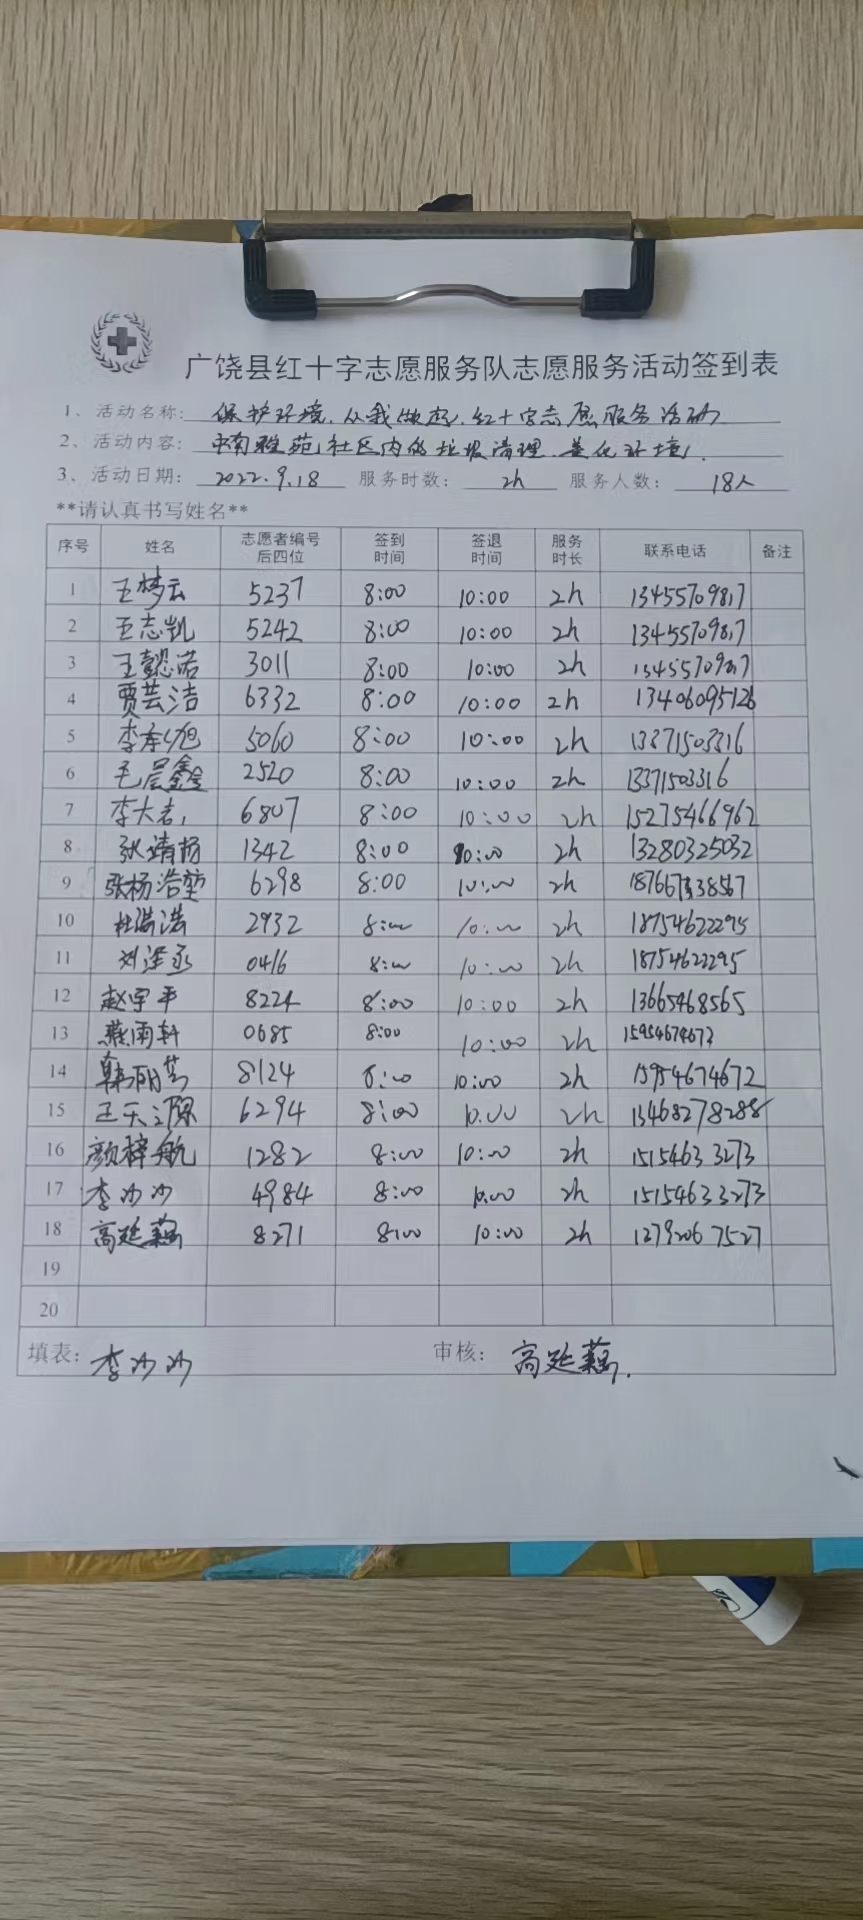 广饶县红十字志愿服务队志愿服务活动签到表
1、活动名称: 保护环境.从我做起.红十字志愿服务活动
2、活动内容: 雅苑社区内的垃圾清理.美化环境.
3、活动日期: 2022.9.18 服务时数: 2h 服务人数: 18人
**请认真书写姓名**
序号 姓名 志愿者编号后四位 签到时间 签退时间 服务时长 联系电话 备注
1 王梦云 5237 8:00 10:00 2h 13455709817
2 王志凯 5242 8:00 10:00 2h 13455709817
3 王懿诺 3011 8:00 10:00 2h 13455709817
4 贾芸洁 6332 8:00 10:00 2h 13406095126
5 5060 8:00 10:00 2h 13371503316
6 毛晨鑫 2520 8:00 10:00 2h 13371503316
7 6807 8:00 10:00 2h 15275466962
8 张靖杨 1342 8:00 10:00 2h 13280325032
9 张杨浩堃 6298 8:00 10:00 2h
10 2932 8:00 10:00 2h 18754622295
11 刘泽丞 0416 8:00 10:00 2h 18754622295
12 赵宇平 8224 8:00 10:00 2h 13665468565
13 燕雨轩 0685 8:00 10:00 2h 15954674672
14 韩丽芳 8124 8:00 10:00 2h 15954674672
15 6294 8:00 10:00 2h 13468278288
16 颜梓航 1282 8:00 10:00 2h 15154633273
17 李沙沙 4984 8:00 10:00 2h 15154633273
18 高延 8271 8:00 10:00 2h
19
20
填表: 李沙沙 审核: 高延